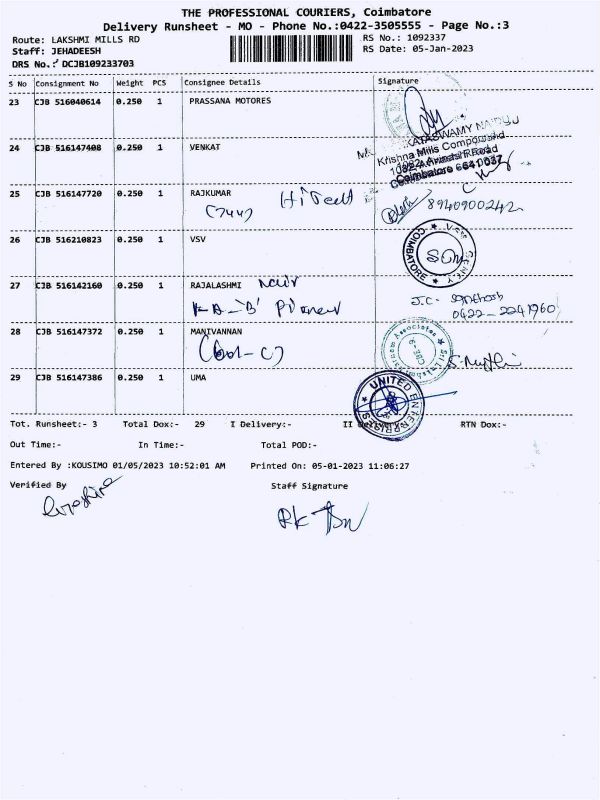 THE PROFESSIONAL COURIERS, Coimbatore
Delivery Runsheet - MO - Phone No.:0422-3505555 - Page No.:3
Route: LAKSHMI MILLS RD RS No.: 1092337
Staff: JEHADEESH RS Date: 05-Jan-2023
DRS No.: DCJB109233703
S No Consignment No Weight PCS Consignee Details Signature
23 CJB 516040614 0.250 1 PRASSANA MOTORES
24 CJB 516147408 0.250 1 VENKAT
KATASWAMY NAIDU
Krishna Mills Compound
Coimbatore - 641 037
25 CJB 516147720 0.250 1 RAJKUMAR
(744) 8940900242
26 CJB 516210823 0.250 1 VSV
COIMBATORE
27 CJB 516142160 0.250 1 RAJALASHMI Nair
J.C. Santhosh
0422-2241960
28 CJB 516147372 0.250 1 MANIVANNAN
CBE-9
29 CJB 516147386 0.250 1 UMA
UNITED ENTERPRISES
Tot. Runsheet:- 3 Total Dox:- 29 I Delivery:- II Delivery:- RTN Dox:-
Out Time:- In Time:- Total POD:-
Entered By :KOUSIMO 01/05/2023 10:52:01 AM Printed On: 05-01-2023 11:06:27
Verified By Staff Signature